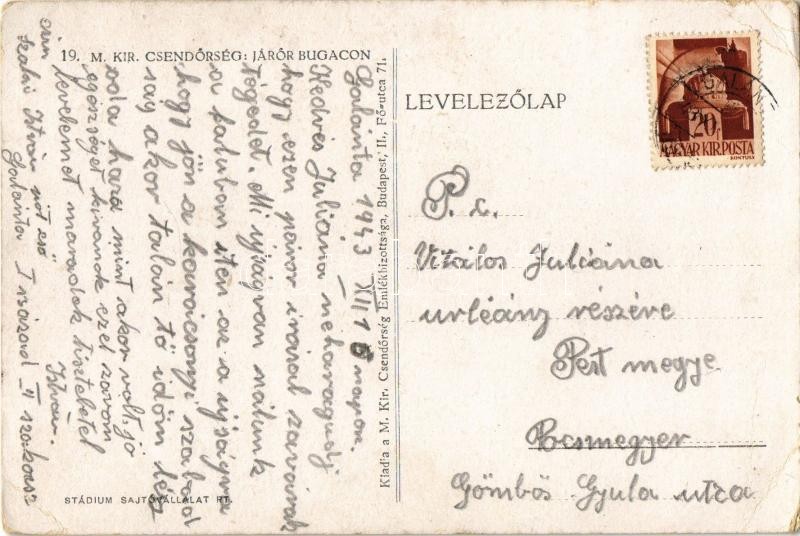 19. M. KIR. CSENDŐRSÉG: JÁRŐR BUGACON
Galánta 1943 XII 16 napon.
Kedves Juliána neharagudj
hogy ezen pár sor irásal zavarak
tégedet. Mi ujságvan nálunk
a faluban iten az a ujságva
hogy jön a karácsonyi szabad
ság akor talán tö időm lész
vala hará mint akor volt, jó
egézséget kivánok ezel zárom
levelemet maradok tisztelétel
István.
István
Galánta I század II szakasz
STÁDIUM SAJTÓVÁLLALAT RT.
Kiadja a M. Kir. Csendőrség Emlékbizottsága, Budapest, II., Fő-utca 71.
LEVELEZŐLAP
20f
MAGYAR KIR. POSTA
KONTULY
GALÁN
P. c.
Vitális Juliána
urléány részére
Pest megye
Pocsmegyer
Gömbös Gyula utza